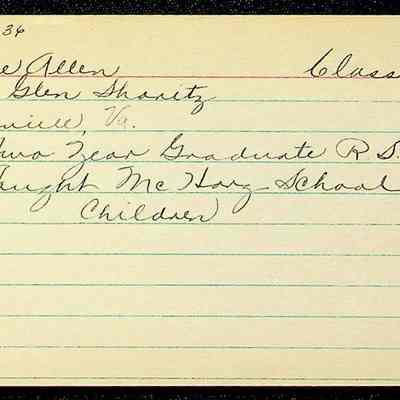 36
e Allen Class
Glen Shoritz
ville, Va.
Two Year Graduate R S.
aught Mc Harg School
Children)